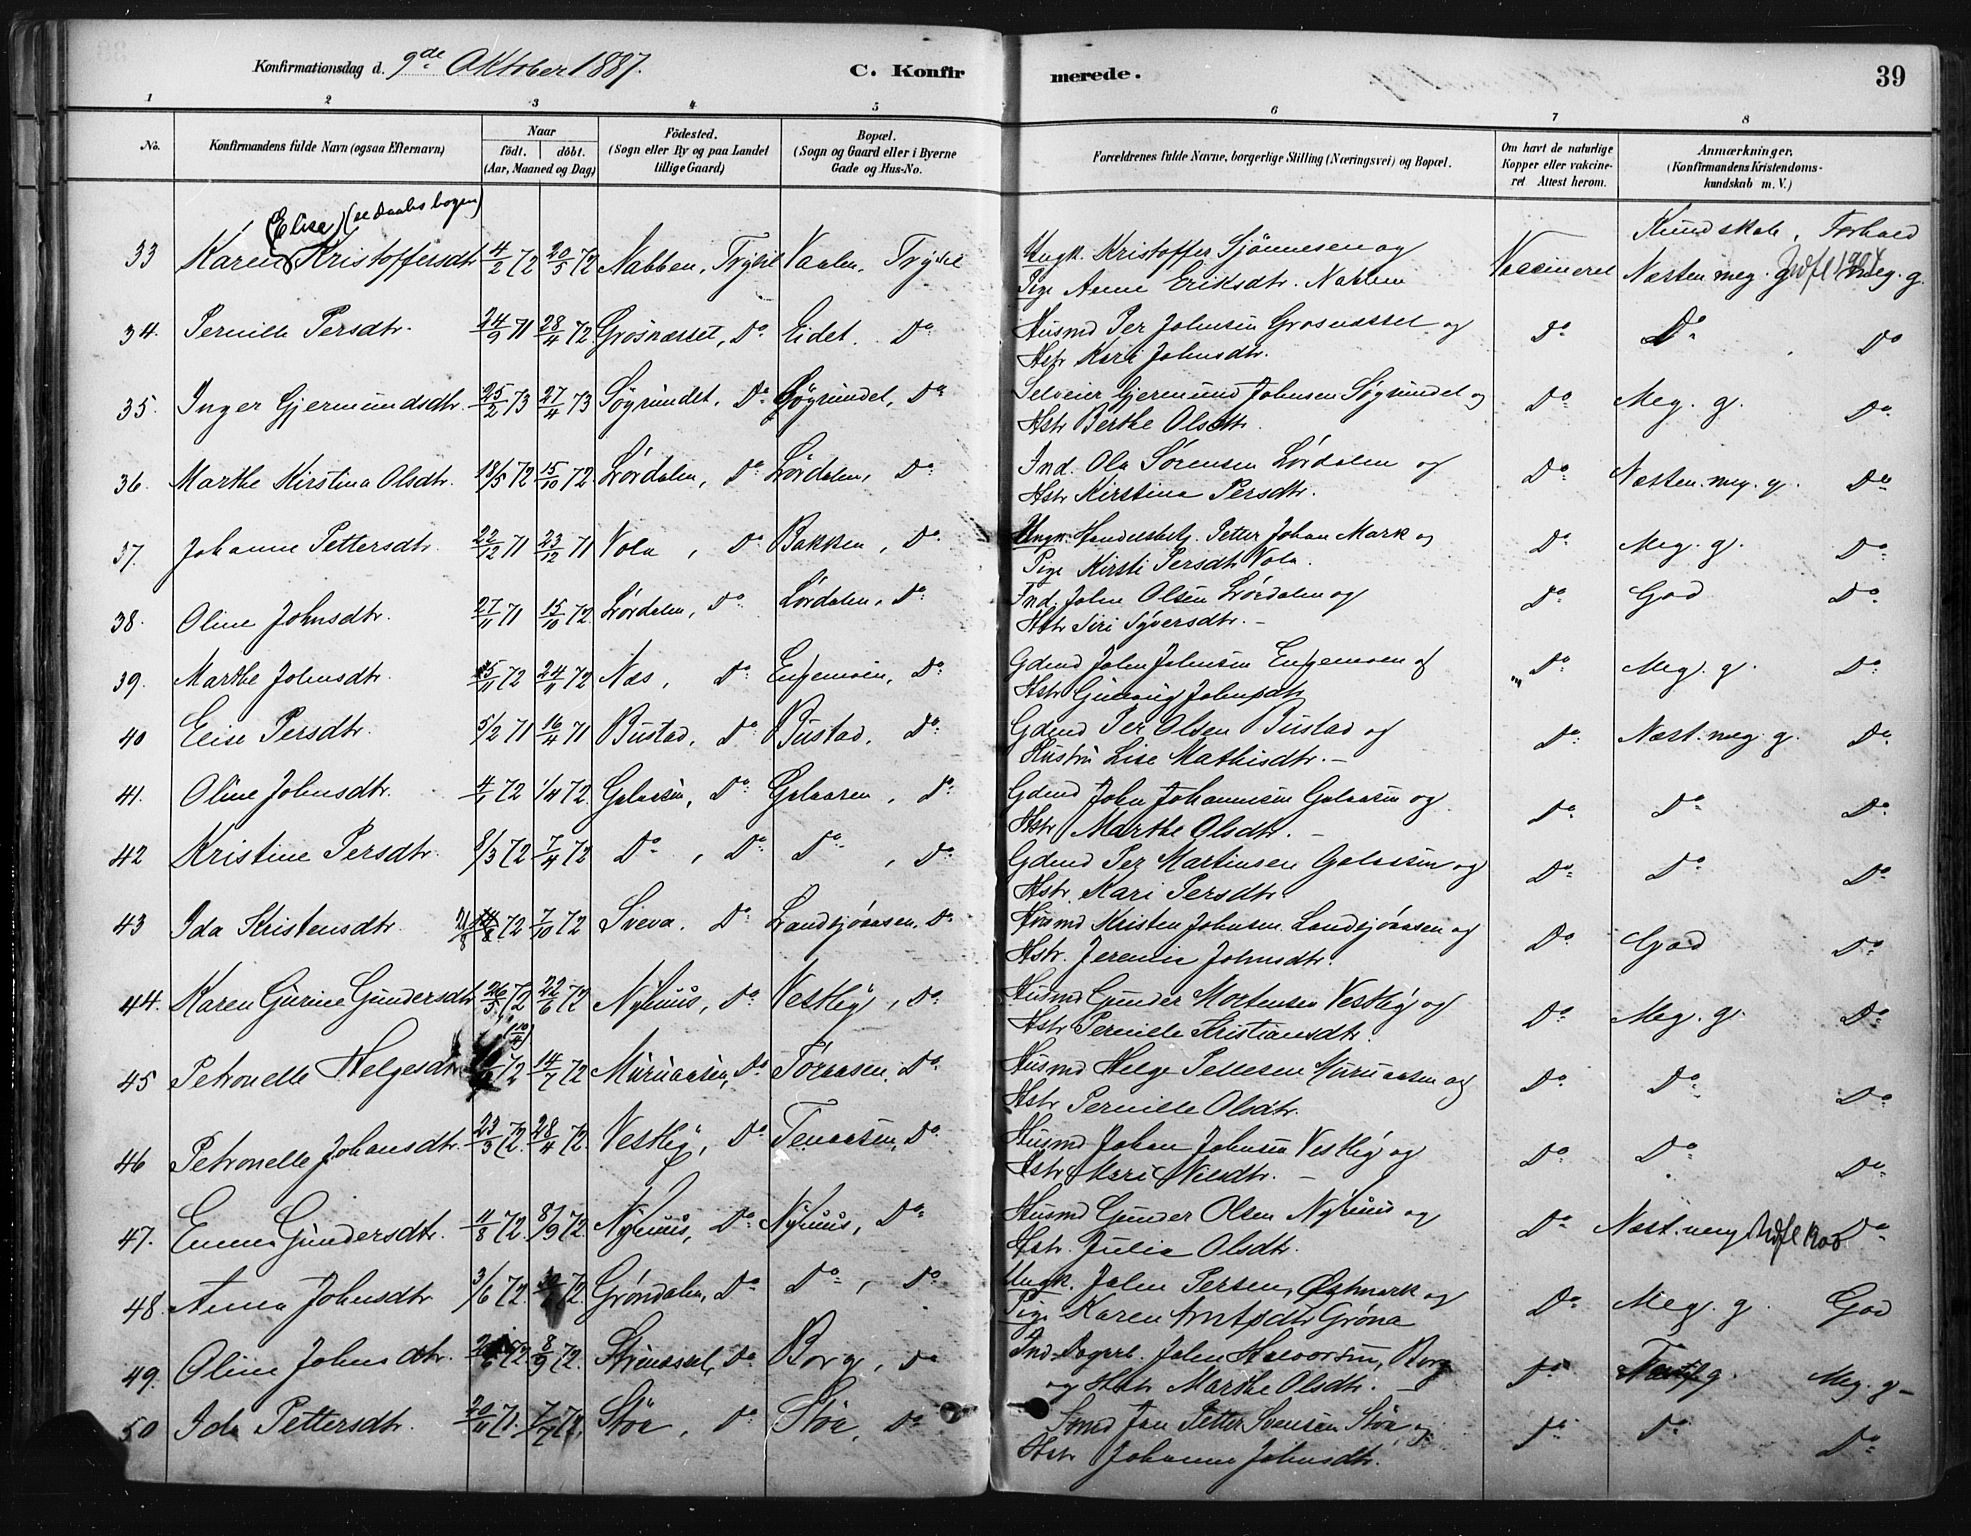 Konfirmationsdag d. 9de Oktober 1887. C. Konfir merede. 39
1 2 3 4 5 6 7 8
No. Konfirmandens fulde Navn (ogsaa Efternavn) Naar født. døbt. (Aar, Maaned og Dag) Födested. (Sogn eller By og paa Landet tillige Gaard) Bopæl. (Sogn og Gaard eller i Byerne Gade og Hus-No. Forældrenes fulde Navne, borgerlige Stilling (Næringsvei) og Bopæl. Om havt de naturlige Kopper eller vakcineret Attest herom. Anmærkninger. (Konfirmandens Kristendomskundskab m. V.)
Elise (se Daabsbogen)
Kundskab. Forhold
33 Karen Kristoffersdtr 4/2 72 20/5 72 Nabben, Trysil Vaalen, Trysil Ungk. Kristoffer Sjønnesen og Vaccineret Næsten meg. g. Udfl 1904 Meg. g.
Pige Anne Eriksdtr. Nabben
34. Pernille Persdtr. 24/9 71 28/4 72 Grosnæsset, Do Eidet. Do Husmd Per Johnsen Grosnæsset og Do Do Do
Hstr Kari Johnsdtr.
35. Inger Gjermundsdtr. 25/2 73 27/4 73 Søgrundet, Do Søgrundet, Do Selveier Gjermund Johnsen Søgrundet og Do Meg. g. Do
Hstr Berthe Olsdtr.
36. Marthe Kirstina Olsdtr. 18/5 72 15/10 72 Lørdalen, Do Lørdalen, Do Ind. Ola Sørensen Lørdalen og Do Næsten meg. g. Do
Hstr Kirstina Persdtr.
37. Johanne Pettersdtr. 22/12 71 23/12 71 Vola, Do Bakken, Do Ungk. Handelsbetj. Petter Johan Mark og Do Meg. g. Do
Pige Kirsti Persdtr Vola.
38. Oline Johnsdtr. 27/11 71 15/10 72 Lørdalen, Do Lørdalen, Do Ind. John Olsen Lørdalen og Do God Do
Hstr Siri Syversdtr. –
39. Marthe Johnsdtr. 15/11 72 24/11 72 Næs, Do Engemoen, Do Gdmd John Johnsen Engemoen og Do Meg. g. Do
Hstr Johnsdtr
40 Elise Persdtr. 5/2 71 16/4 71 Bustad, Do Bustad, Do Gdmd Per Olsen Bustad og Do Næst. meg. g. Do
Hustru Lise Mathisdtr. –
41. Oline Johnsdtr. 4/1 72 1/4 72 Galaasen, Do Galaasen, Do Gdmd John Johannesen Galaasen og Do Do Do
Hstr Marthe Olsdtr. –
42 Kristine Persdtr. 8/3 72 7/4 72 Do, Do Do, Do Gdmd Per Martinsen Galaasen og Do Do Do
Hstr. Kari Persdtr.
43 Ida Kristensdtr. 21/8 72 7/10 72 Sveva, Do Landsjøaasen, Do Husmd Kristen Johnsen Landsjøaasen og Do God Do
Hstr. Jeremia Johnsdtr.
44. Karen Gurine Gundersdtr 26/5 72 22/6 72 Nyhuus, Do Vestby, Do Husmd Gunder Mortensen Vestby og Do Meg. g. Do
Hstr Pernille Kristiansdtr.
45 Petronelle Helgesdtr 72 14/7 72 Muruaasen, Do Tøraasen, Do Husmd Helge Pettersen Muruaasen og Do Do Do
Hstr Pernille Olsdtr.
46 Petronelle Johansdtr. 23/3 72 28/4 72 Vestby, Do Tenaasen, Do Husmd Johan Johnsen Vestby og Do Do Do
Hstr Mari Nilsdtr. –
47. Emma Gundersdtr. 11/8 72 8/9 72 Nyhuus, Do Nyhuus, Do Husmd Gunder Olsen Nyhuus og Do Næst. meg Udfl Do
Hstr. Julia Olsdtr.
48. Anna Johnsdtr 3/6 72 72 Grøndalen, Do Do, Do Ungk. John Persen, Østmark og Do Meg. g. God
Pige Karen Arntsdtr Grøna
49. Oline Johnsdtr. 72 8/9 72 Do Borg, Do Ind. John Halvorsen, Borg Do g. Meg. g –
og Hstr Marthe Olsdtr. –
50 Ida Pettersdtr. 20/11 71. 7/7 72 Støa, Do Støa, Do Smd Jan Petter Svensen Støa og Do Do Do
Hstr Johanna Johnsdtr.